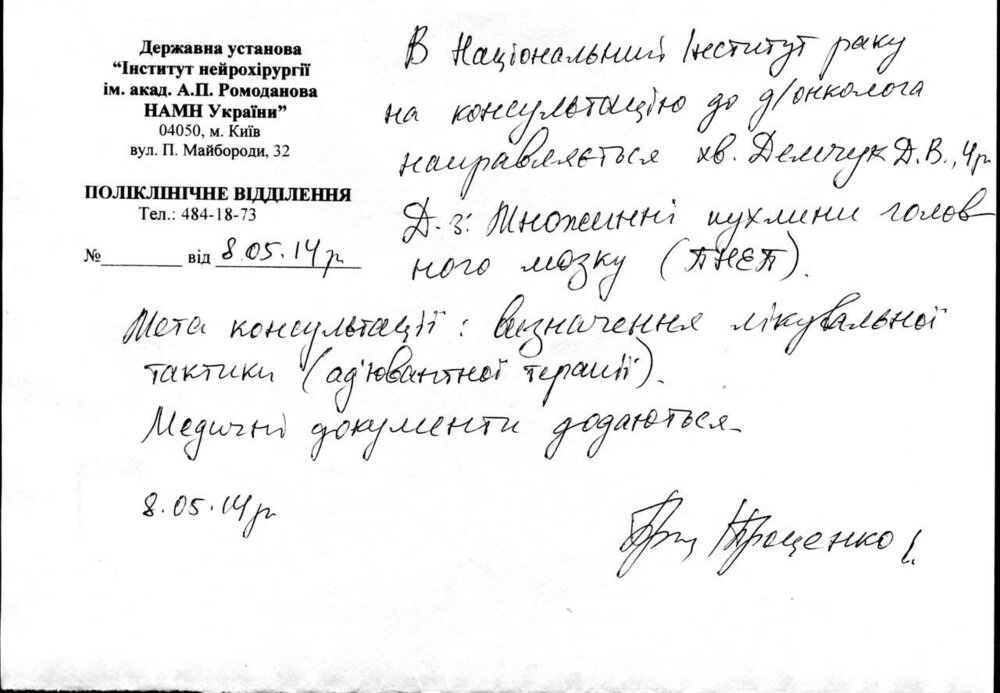 Державна установа
“Інститут нейрохірургії
ім. акад. А.П. Ромоданова
НАМН України”
04050, м. Київ
вул. П. Майбороди, 32
ПОЛІКЛІНІЧНЕ ВІДДІЛЕННЯ
Тел.: 484-18-73
№________ від 8.05.14р.
В Національний Інститут раку
на консультацію до д/онколога
направляється хв. Демчук Д.В., 4р.
Д-з: Множинні пухлини голов
ного мозку (ПНЕП).
Мета консультації: визначення лікувальної
тактики (ад'ювантної терапії).
Медичні документи додаються.
8.05.14р.
Проценко